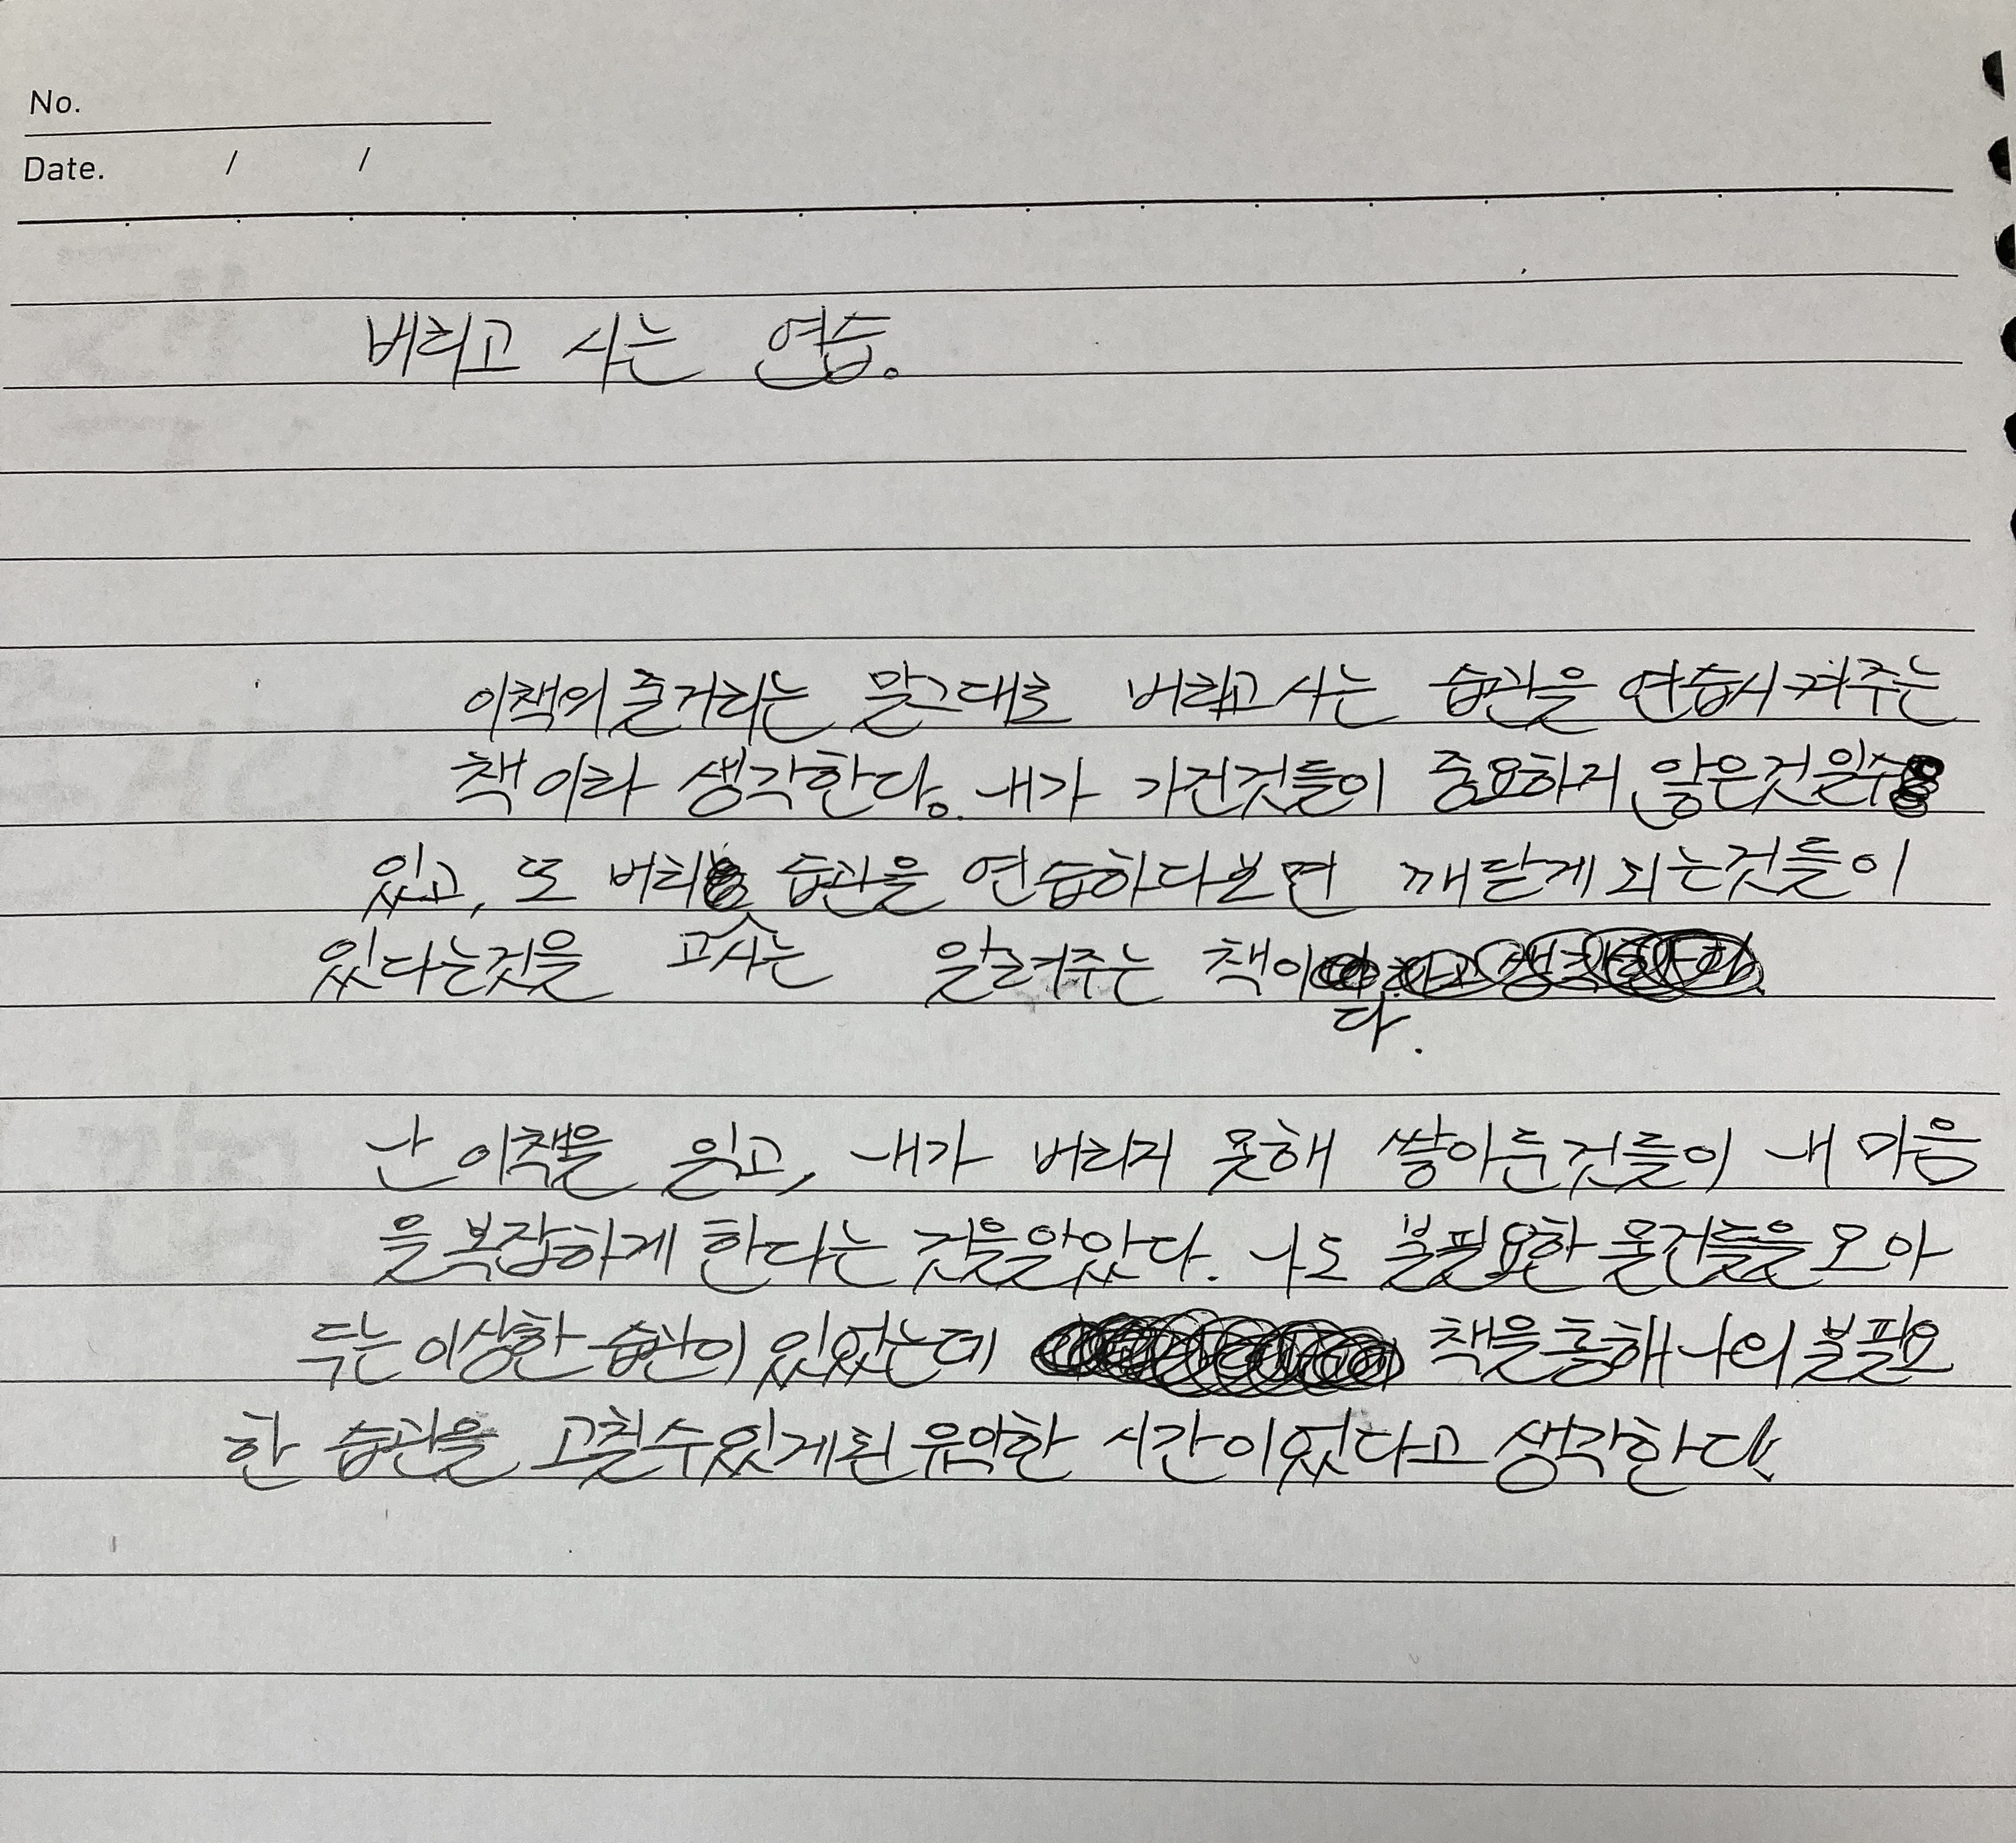 No.
Date. / /
버리고 사는 연습.
이책의 줄거리는 말그대로 버리고 사는 습관을 연습시켜주는
책이라 생각한다. 내가 가진것들이 중요하지 않은것일수
있고, 또 버리 습관을 연습하다보면 깨닫게 되는것들이
고사는
있다는것을 알려주는 책이
다.
난 이책을 읽고, 내가 버리지 못해 쌓아둔것들이 내 마음
을 복잡하게 한다는 것을알았다. 나도 불필요한 물건들을 모아
두는 이상한 습관이 있었는데 책을통해 나의 불필요
한 습관을 고칠수있게된 유익한 시간이었다고 생각한다.